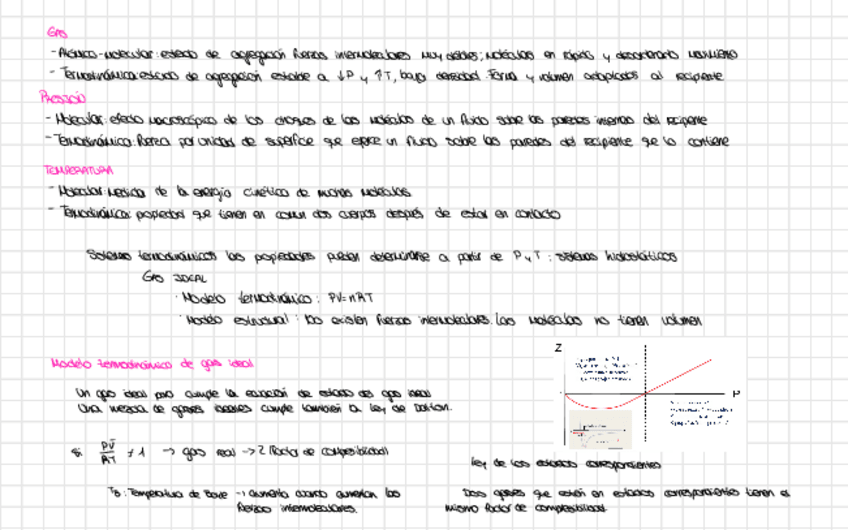 GAS
- Atómico-molecular: estado de agregación fuerzas intermoleculares muy débiles; moléculas en rápido y desordenado movimiento
- Termodinámica: estado de agregación estable a ↓P y ↑T, baja densidad. Forma y volumen adaptados al recipiente
PRESIÓN
- Molecular: efecto macroscópico de los choques de las moléculas de un fluido sobre las paredes internas del recipiente
- Termodinámica: Fuerza por unidad de superficie que ejerce un fluido sobre las paredes del recipiente que lo contiene
TEMPERATURA
- Molecular: medida de la energía cinética de muchas moléculas
- Termodinámica: propiedad que tienen en común dos cuerpos después de estar en contacto
Sistemas termodinámicos las propiedades pueden determinarse a partir de P y T: sistemas hidrostáticos
GAS IDEAL
· Modelo termodinámico: PV=nRT
· Modelo estructural: No existen fuerzas intermoleculares. Las moléculas no tienen volumen
Modelo termodinámico de gas ideal
Un gas ideal puro cumple la ecuación de estado del gas ideal
Una mezcla de gases ideales cumple también la ley de Dalton.
Z
P
si PV̄/RT ≠ 1 → gas real → Z (factor de compresibilidad)
Ley de los estados correspondientes
T_B: Temperatura de Boyle → aumenta cuando aumentan las
fuerzas intermoleculares.
Dos gases que estén en estados correspondientes tienen el
mismo factor de compresibilidad